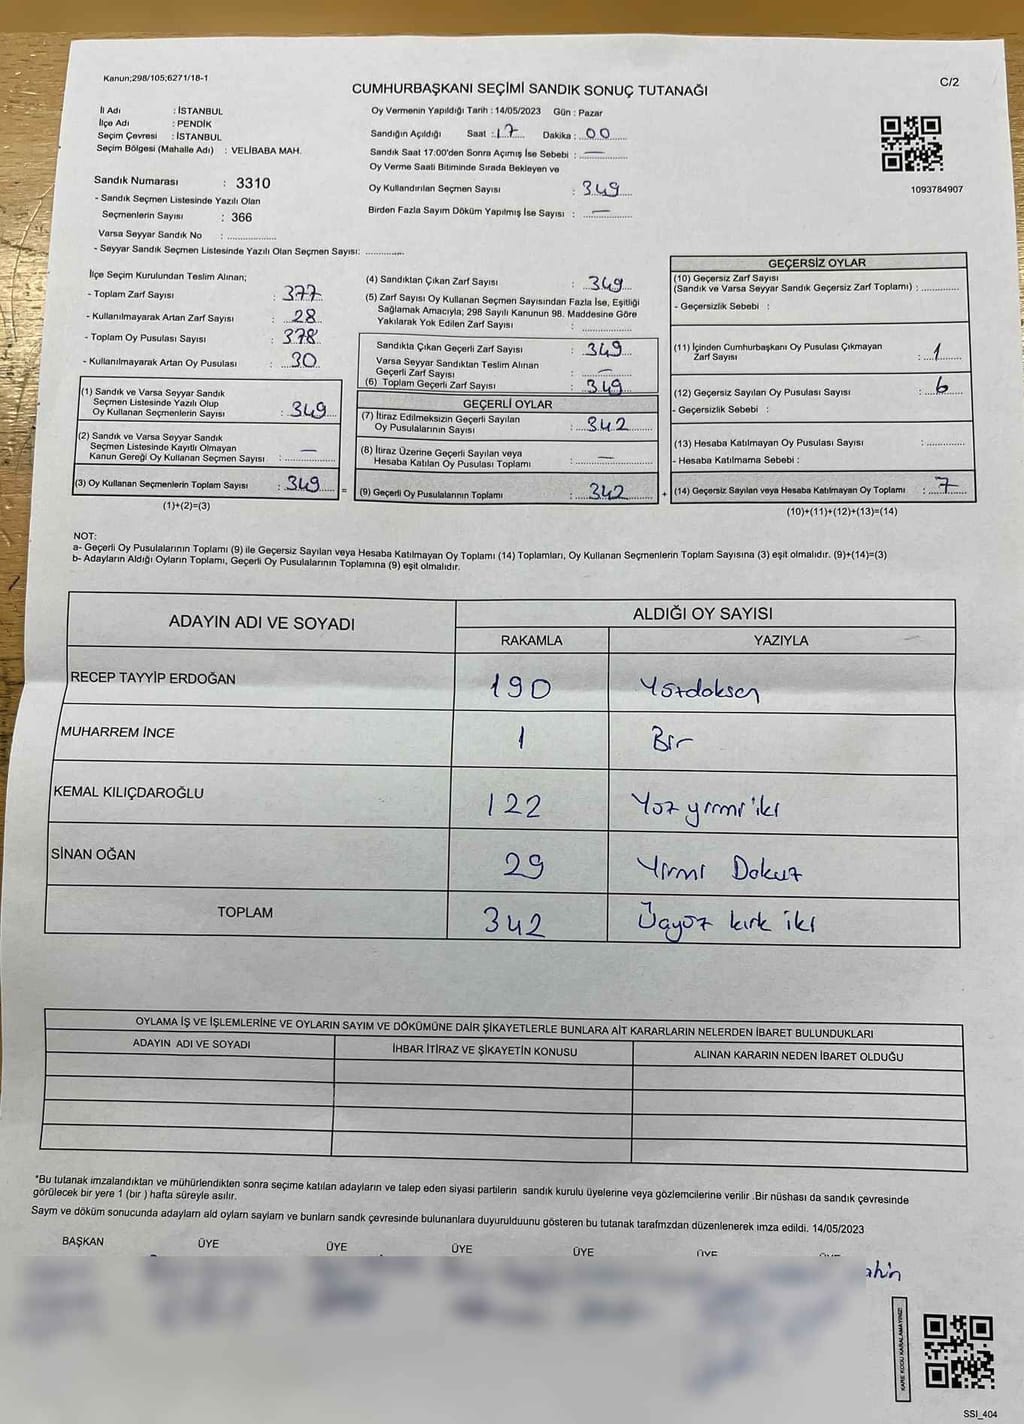 Kanun;298/105;6271/18-1
C/2
CUMHURBAŞKANI SEÇİMİ SANDIK SONUÇ TUTANAĞI
İl Adı : İSTANBUL
İlçe Adı : PENDİK
Seçim Çevresi : İSTANBUL
Seçim Bölgesi (Mahalle Adı) : VELİBABA MAH.
Sandık Numarası : 3310
- Sandık Seçmen Listesinde Yazılı Olan
Seçmenlerin Sayısı : 366
Varsa Seyyar Sandık No : ................
- Seyyar Sandık Seçmen Listesinde Yazılı Olan Seçmen Sayısı: .............
Oy Vermenin Yapıldığı Tarih : 14/05/2023 Gün : Pazar
Sandığın Açıldığı Saat : 17 Dakika : 00
Sandık Saat 17:00'den Sonra Açımış İse Sebebi : —
Oy Verme Saati Bitiminde Sırada Bekleyen ve
Oy Kullandırılan Seçmen Sayısı : 349
Birden Fazla Sayım Döküm Yapılmış İse Sayısı : —
1093784907
İlçe Seçim Kurulundan Teslim Alınan;
- Toplam Zarf Sayısı : 377
- Kullanılmayarak Artan Zarf Sayısı : 28
- Toplam Oy Pusulası Sayısı : 378
- Kullanılmayarak Artan Oy Pusulası : 30
(1) Sandık ve Varsa Seyyar Sandık
Seçmen Listesinde Yazılı Olup
Oy Kullanan Seçmenlerin Sayısı : 349
(2) Sandık ve Varsa Seyyar Sandık
Seçmen Listesinde Kayıtlı Olmayan
Kanun Gereği Oy Kullanan Seçmen Sayısı : —
(3) Oy Kullanan Seçmenlerin Toplam Sayısı : 349 =
(1)+(2)=(3)
(4) Sandıktan Çıkan Zarf Sayısı : 349
(5) Zarf Sayısı Oy Kullanan Seçmen Sayısından Fazla İse, Eşitliği
Sağlamak Amacıyla; 298 Sayılı Kanunun 98. Maddesine Göre
Yakılarak Yok Edilen Zarf Sayısı : ................
Sandıkta Çıkan Geçerli Zarf Sayısı : 349
Varsa Seyyar Sandıktan Teslim Alınan
Geçerli Zarf Sayısı : —
(6) Toplam Geçerli Zarf Sayısı : 349
GEÇERLİ OYLAR
(7) İtiraz Edilmeksizin Geçerli Sayılan
Oy Pusulalarının Sayısı : 342
(8) İtiraz Üzerine Geçerli Sayılan veya
Hesaba Katılan Oy Pusulası Toplamı : —
(9) Geçerli Oy Pusulalarının Toplamı : 342 +
GEÇERSİZ OYLAR
(10) Geçersiz Zarf Sayısı
(Sandık ve Varsa Seyyar Sandık Geçersiz Zarf Toplamı) : ............
- Geçersizlik Sebebi :
(11) İçinden Cumhurbaşkanı Oy Pusulası Çıkmayan
Zarf Sayısı : 1
(12) Geçersiz Sayılan Oy Pusulası Sayısı : 6
- Geçersizlik Sebebi :
(13) Hesaba Katılmayan Oy Pusulası Sayısı : ............
- Hesaba Katılmama Sebebi :
(14) Geçersiz Sayılan veya Hesaba Katılmayan Oy Toplamı : 7
(10)+(11)+(12)+(13)=(14)
NOT:
a- Geçerli Oy Pusulalarının Toplamı (9) ile Geçersiz Sayılan veya Hesaba Katılmayan Oy Toplamı (14) Toplamları, Oy Kullanan Seçmenlerin Toplam Sayısına (3) eşit olmalıdır. (9)+(14)=(3)
b- Adayların Aldığı Oyların Toplamı, Geçerli Oy Pusulalarının Toplamına (9) eşit olmalıdır.
ADAYIN ADI VE SOYADI ALDIĞI OY SAYISI
RAKAMLA YAZIYLA
RECEP TAYYİP ERDOĞAN 190 Yüzdoksan
MUHARREM İNCE 1 Bir
KEMAL KILIÇDAROĞLU 122 Yüz yirmi iki
SİNAN OĞAN 29 Yirmi Dokuz
TOPLAM 342 Üçyüz kırk iki
OYLAMA İŞ VE İŞLEMLERİNE VE OYLARIN SAYIM VE DÖKÜMÜNE DAİR ŞİKAYETLERLE BUNLARA AİT KARARLARIN NELERDEN İBARET BULUNDUKLARI
ADAYIN ADI VE SOYADI İHBAR İTİRAZ VE ŞİKAYETİN KONUSU ALINAN KARARIN NEDEN İBARET OLDUĞU
*Bu tutanak imzalandıktan ve mühürlendikten sonra seçime katılan adayların ve talep eden siyasi partilerin sandık kurulu üyelerine veya gözlemcilerine verilir .Bir nüshası da sandık çevresinde
görülecek bir yere 1 (bir ) hafta süreyle asılır.
Saym ve döküm sonucunda adaylarn ald oylarn saylarn ve bunlarn sandk çevresinde bulunanlara duyurulduunu gösteren bu tutanak tarafmzdan düzenlenerek imza edildi. 14/05/2023
BAŞKAN ÜYE ÜYE ÜYE ÜYE ÜYE
ahin
KARE KODU KARALAMAYINIZ!
SSI_404